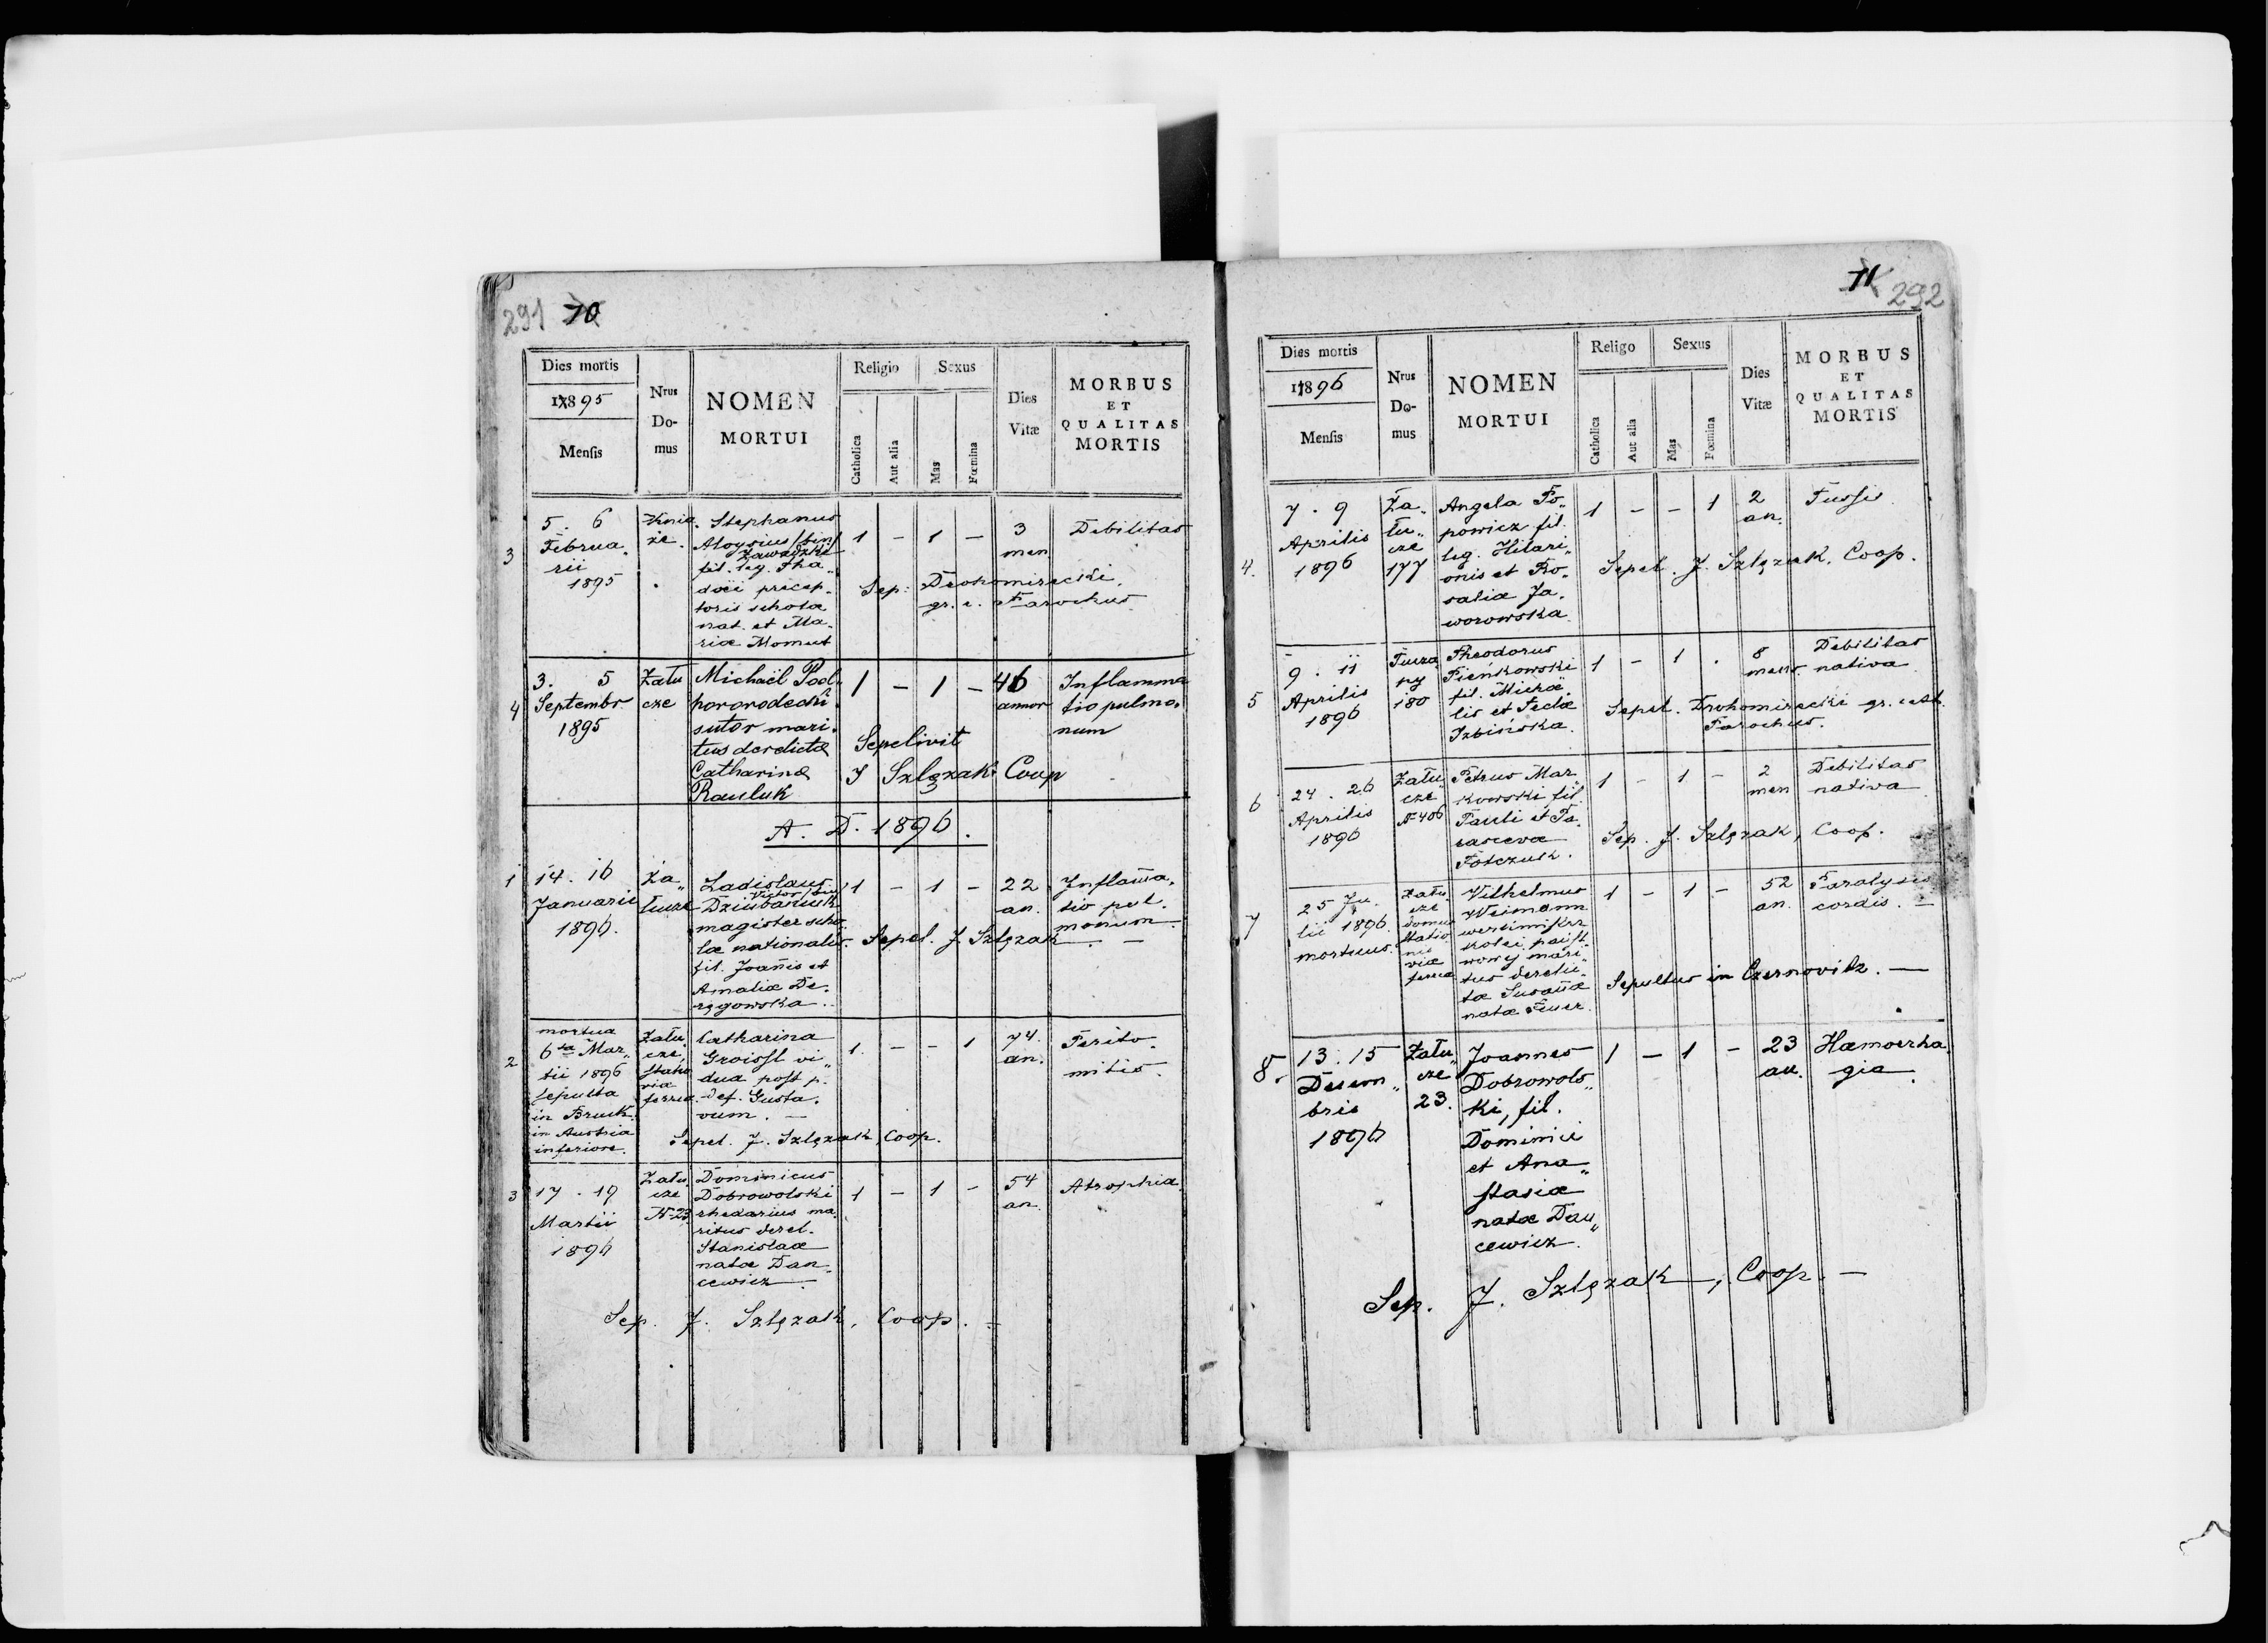 291 70
Dies mortis
1895
Mensis
Nrus
Do-
mus
NOMEN
MORTUI
Religio
Catholica
Aut alia
Sexus
Mas
Fœmina
Dies
Vitæ
MORBUS
ET
QUALITAS
MORTIS
3
5. 6
Februa„
rii
1895
Knia„
że
Stephanus
Aloysius /bin/
Zawadzki
fil. leg. Tha„
dæi præcep„
toris scholæ
nat. et Ma„
riæ Momut
1 – 1 –
3
men
Debilitas
Sep: Drohomirecki,
gr. c. Parochus.
4
3. 5
Septembr
1895
Zału
cze
Michaël Pod„
horodecki
sutor mari„
tus derelictæ
Catharinæ
Rauluk
1 – 1 –
46
annor
Inflamma
tio pulmo„
num
Sepelivit
J Szlęzak Coop
A. D. 1896.
1
14. 16
Januarii
1896.
Za„
łucze
Ladislaus
Victor /bin/
Dziubaniuk
magister scho„
læ nationalis.
fil. Joañis et
Amaliæ De„
ręgowska.
1 – 1 –
22
an.
Inflam̃a„
tio pul„
monum.
Sepel. J. Szlęzak. –
2
mortua
6ta Mar„
tii 1896
sepulta
in Bruck
in Austria
inferiore.
Zału„
cze,
statio
viæ
ferreæ.
Catharina
Groissl vi„
dua post p.
def. Gusta„
vum. –
1. – – 1
74.
an.
Perito„
nitis.
Sepel. J. Szlęzak, Coop.
3
17. 19
Martii
1896
Zału„
cze
N 23
Dominicus
Dobrowolski
rhedarius ma„
ritus derel.
Stanislaæ
natæ Dan„
cewicz.
1 – 1 –
54
an.
Atrophia
Sep. J. Szlęzak, Coop. –
71 292
Dies mortis
1896
Mensis
Nrus
Do-
mus
NOMEN
MORTUI
Religo
Catholica
Aut alia
Sexus
Mas
Fœmina
Dies
Vitæ
MORBUS
ET
QUALITAS
MORTIS
4.
7. 9
Aprilis
1896
Za„
łu„
cze
177
Angela Po„
powicz fil.
leg. Hilari„
onis et Ro„
saliæ Ja„
worowska.
1 – – 1
2
an.
Tussis.
Sepel. J. Szlęzak, Coop.
5
9. 11
Aprilis
1896
Tucza„
py
180
Theodorus
Pieńkowski
fil. Michæ„
lis et Teclæ
Izbińska.
1 – 1 .
8
mens.
Debilitas
nativa.
Sepel. Drohomirecki gr. cath.
Parochus.
6
24. 26
Aprilis
1896
Zału„
cze
N 406
Petrus Mar„
kowski fil.
Pauli et Pa„
rascevæ
1 – 1 –
2
men
Debilitas
nativa.
Sep. J. Szlęzak, Coop.
7
25 Ju„
lii 1896.
mortuus.
Zału„
cze
domus
statio„
nis
viæ
ferreæ
Wilhelmus
Weimann
kolei państ„
wowej mari„
tus derelic„
tæ Susañæ
natæ Feuer.
1 – 1 –
52
an.
Paralysis
cordis. –
Sepultus in Czernovitz. –
8.
13. 15
Decem„
bris
1896
Zału„
cze
23.
Joannes
Dobrowols„
ki, fil.
Dominici
et Ana„
stasiæ
natæ Dan„
cewicz.
1 – 1 –
23
an.
Hæmorrha„
gia.
Sep. J. Szlęzak, Coop. –